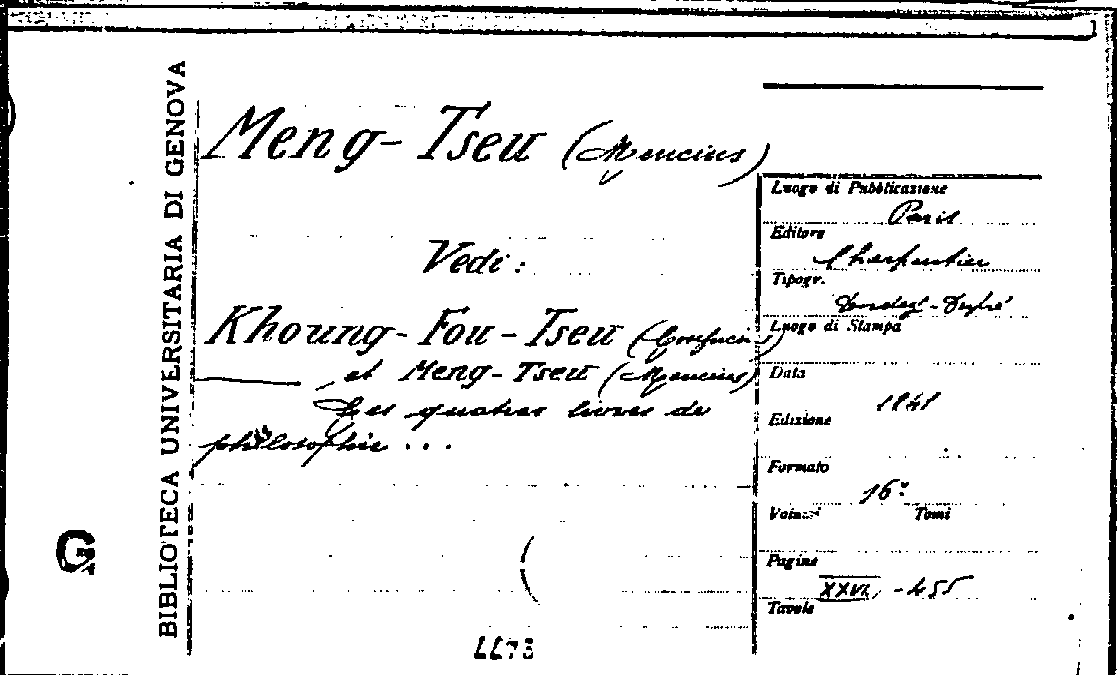 BIBLIOTECA UNIVERSITARIA DI GENOVA
Meng-Tseu (Mencius)
Vedi:
Khoung-Fou-Tseu (Confucius)
et Meng-Tseu (Mencius)
Les quatres livres de
philosophie ...
Luogo di Pubblicazione
Paris
Editore
Charpentier
Tipogr.
Luogo di Stampa
Data
1841
Edizione
Formato
16°
Volumi Tomi
Pagine
XXVI, -455
Tavole
G